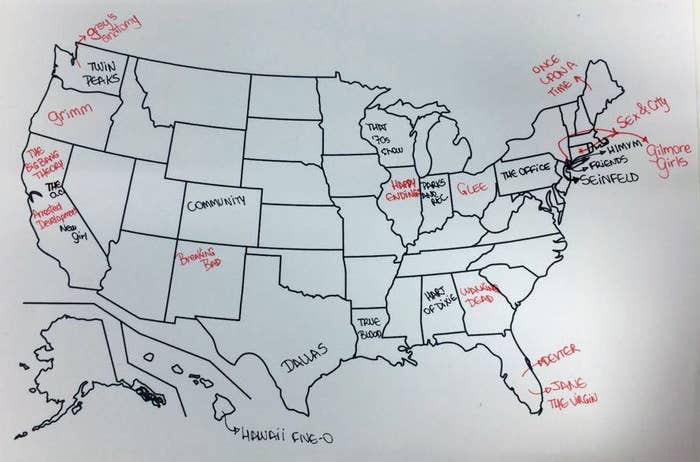 grey's
anatomy
TWIN
PEAKS
grimm
THE
BIG BANG
THEORY
THE
O.C
Arrested
Development
New
girl
COMMUNITY
BREAKING
BAD
DALLAS
THAT
'70s
SHOW
HAPPY
ENDINGS
PARKS
AND
REC
GLEE
THE OFFICE
ONCE
UPON A
TIME
SEX & CITY
Gilmore
girls
HIMYM
FRIENDS
SEINFELD
TRUE
BLOOD
HART
OF DIXIE
WALKING
DEAD
DEXTER
JANE
THE VIRGIN
HAWAII FIVE-O